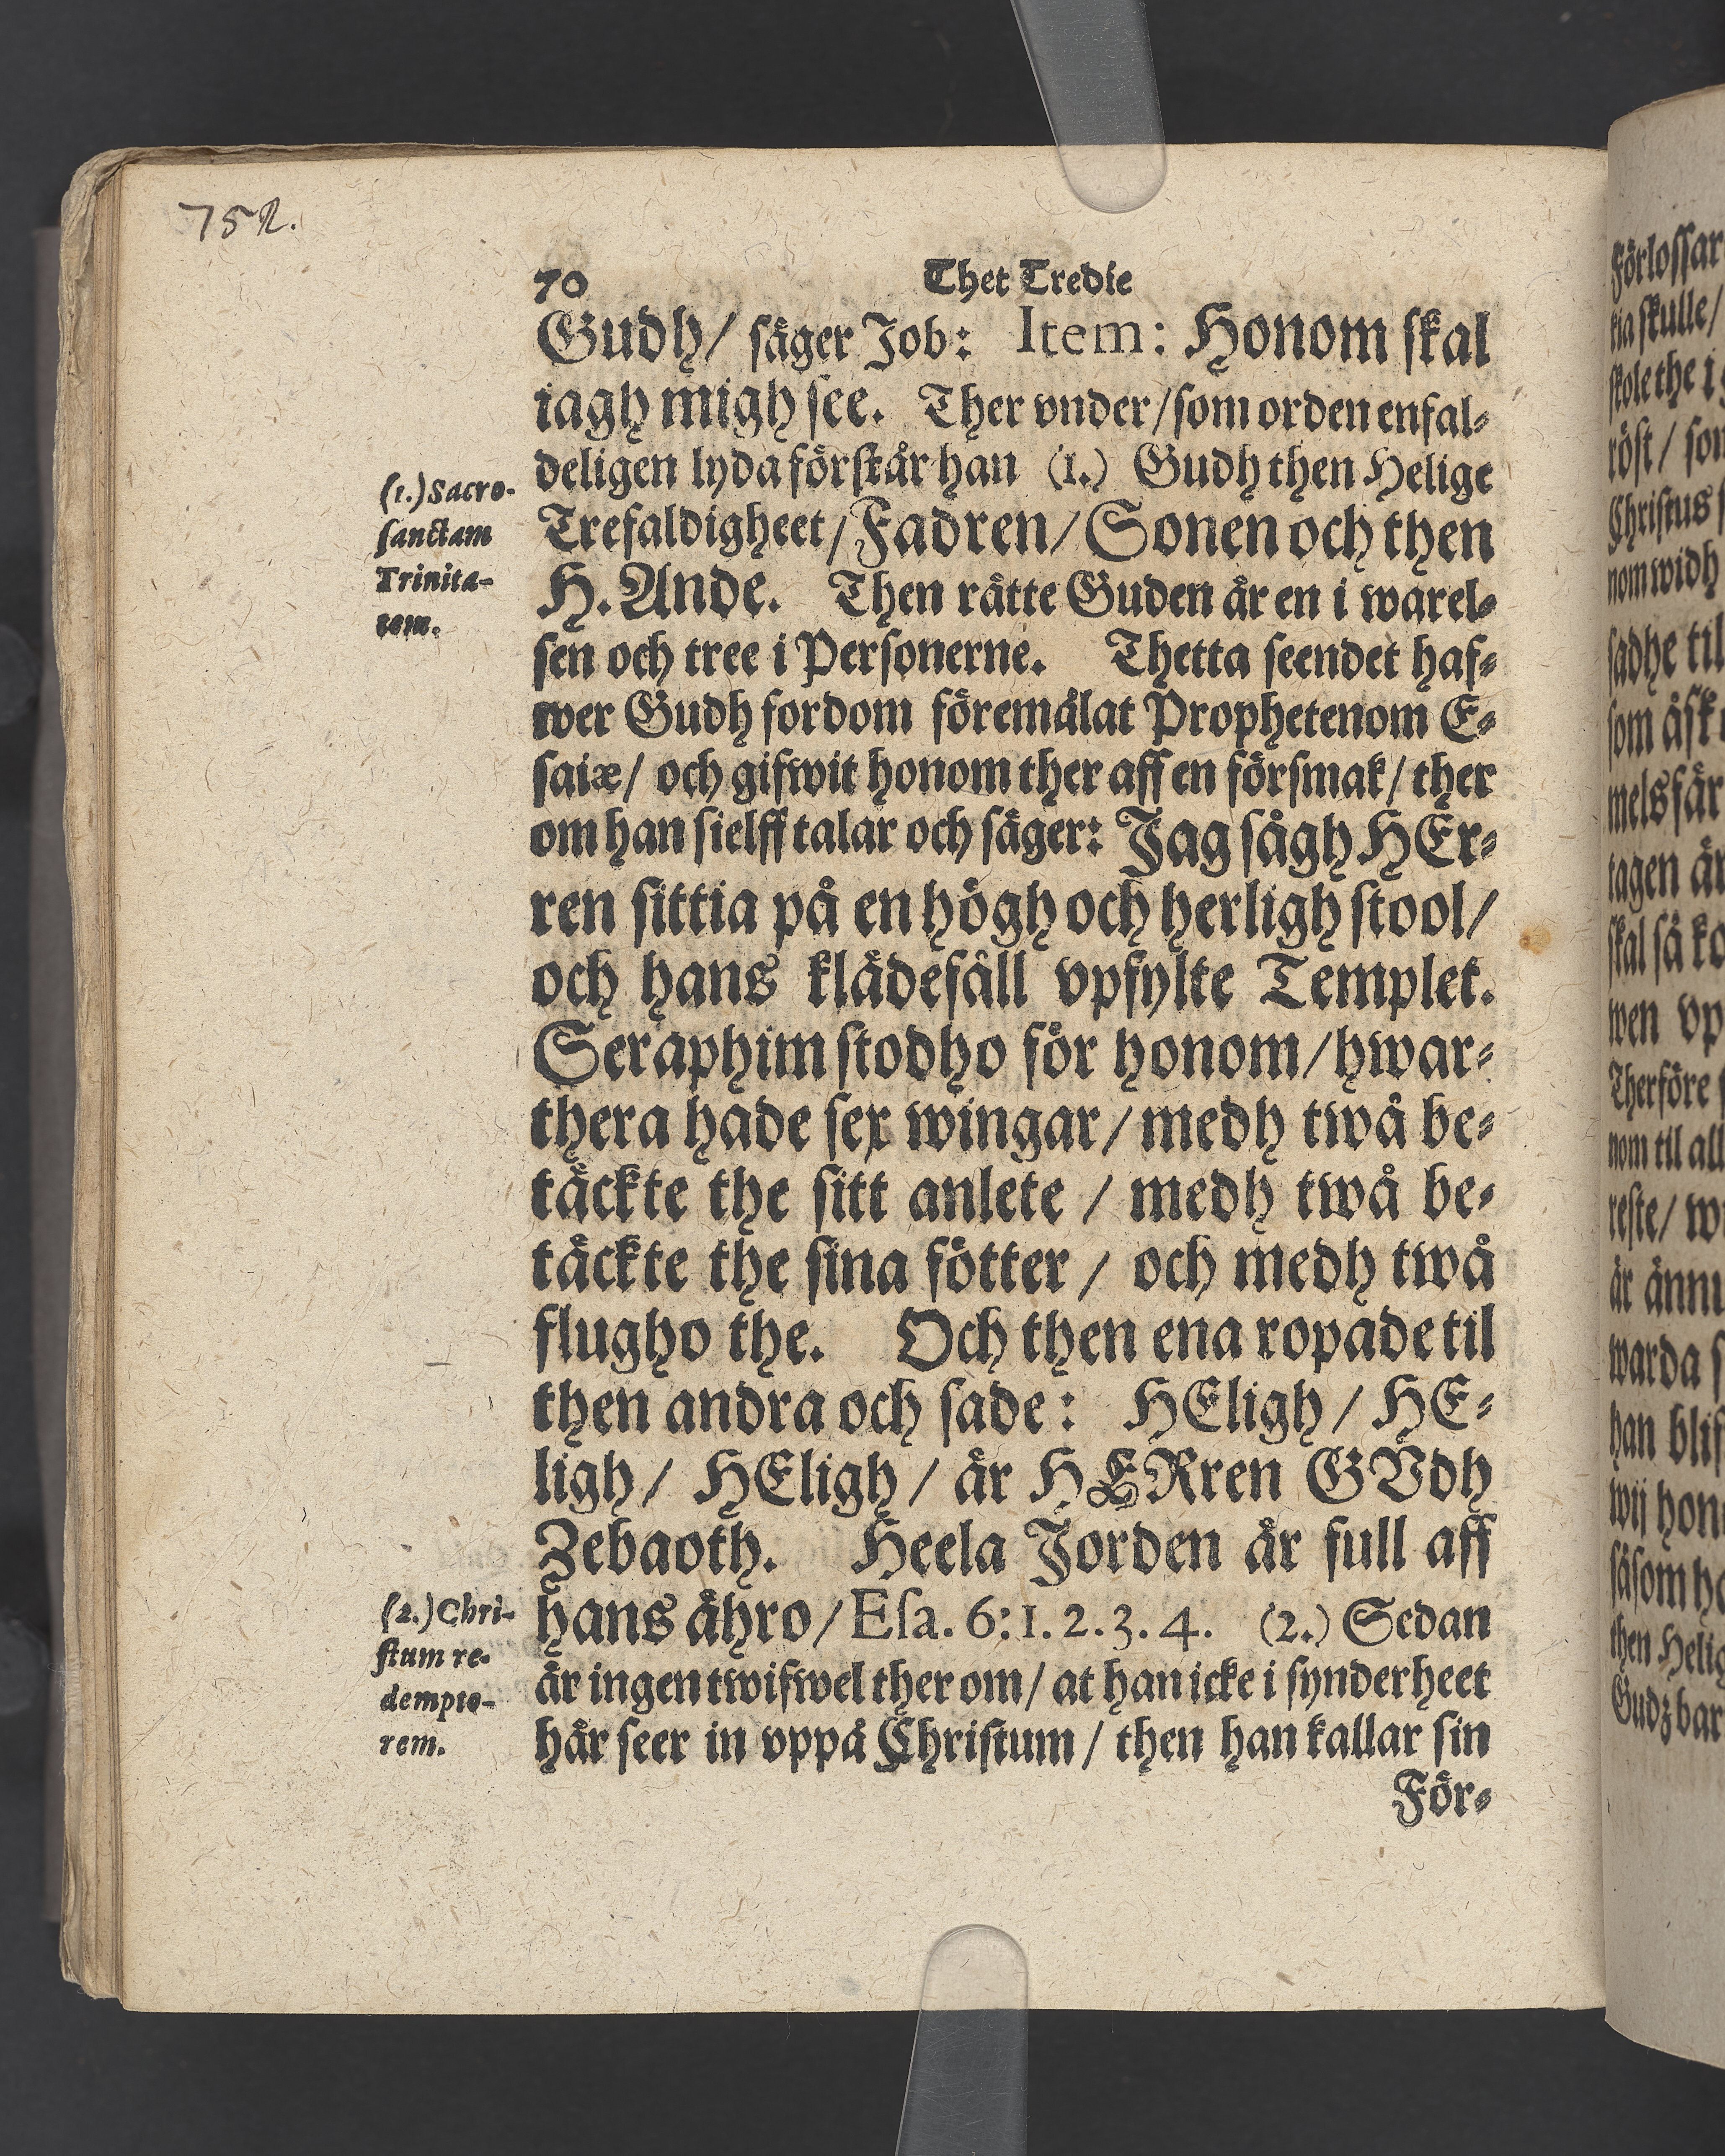 752.
70 Thet Tredie
Gudh/ säger Job: Item: Honom skal
iagh migh see. Ther vnder/som orden enfal-
deligen lyda förstår han (1.) Gudh then Helige
Trefaldigheet/Fadren/Sonen och then
H. Ande. Then rätte Guden är en i warel-
sen och tree i Personerne. Thetta seendet haf-
wer Gudh fordom föremålat Prophetenom E-
saiæ/ och gifwit honom ther aff en försmak/ ther
om han sielff talar och säger: Jag sågh HEr-
ren sittia på en högh och herligh stool/
och hans klädefåll vpfylte Templet.
Seraphim stodho för honom/hwar-
thera hade sex wingar/medh twå be-
täckte the sitt anlete / medh twå be-
täckte the sina fötter / och medh twå
flugho the. Och then ena ropade til
then andra och sade: HEligh / HE-
ligh/ HEligh / är HERren GVdh
Zebaoth. Heela Jorden är full aff
hans ähro/Esa. 6:1. 2. 3. 4. (2.) Sedan
är ingen twifwel ther om/ at han icke i synderheet
här seer in vppå Christum/ then han kallar sin
För-
(1.) Sacro-
sanctam
Trinita-
tem.
(2.) Chri-
stum re-
dempto-
rem.
Förlossar
skulle/
skole the i
röst/
Christus
nom widh
sadhe til
som
mels
tagen är
skal så
wen vp
Therföre
nom til all
reste/
är ännu
warda
han
wij
såsom
then
Gudz bar